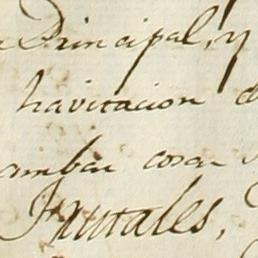 Principal, y
havitacion
ambas cosas
Frutales,